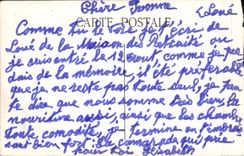 Chère Yvonne
(Loué
CARTE POSTALE
Comme tu le vois je t'écris de
Loué de la Maison des Retraité ou
je suis entré le 12 Aout, comme je per
dais de la mémoire, il été préférable
que je ne reste pas toute seule, je peu
te dire que nous somme très bien, la
nourriture aussi, ainsi que les chambre
Toute comodité, je termine en t'embras
sant bien fort. Ta camarade qui pense
pour toi Elisabeth